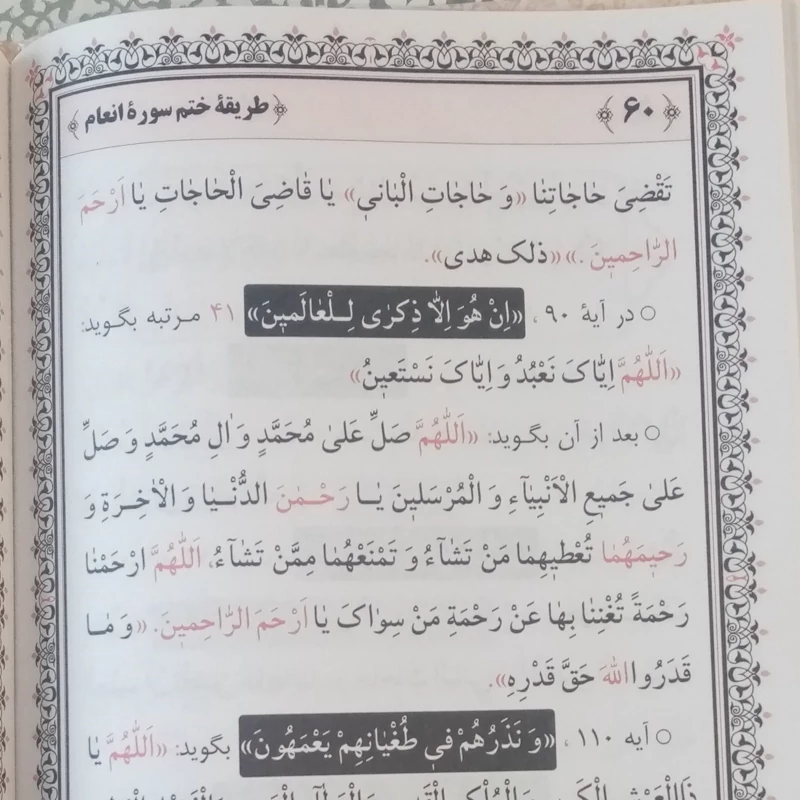 ﴿۶۰﴾ ﴿طریقهٔ ختم سورهٔ انعام﴾
تَقْضِیَ حٰاجٰاتِنٰا «وَ حٰاجٰاتِ الْبٰانیٖ» یٰا قٰاضِیَ الْحٰاجٰاتِ یٰا اَرْحَمَ
الرّٰاحِمیٖنَ.» «ذلک هدی».
○ در آیهٔ ۹۰، «اِنْ هُوَ اِلّٰا ذِکرٰی لِـلْعٰالَمیٖنَ» ۴۱ مرتبه بگوید:
«اَللّٰهُمَّ اِیّٰاکَ نَعْبُدُ وَ اِیّٰاکَ نَسْتَعیٖنُ»
○ بعد از آن بگوید: «اَللّٰهُمَّ صَلِّ عَلیٰ مُحَمَّدٍ وَ اٰلِ مُحَمَّدٍ وَ صَلِّ
عَلیٰ جَمیٖعِ الْاَنْبِیٰآءِ وَ الْمُرْسَلیٖنَ یٰـا رَحْـمٰنَ الدُّنْـیٰا وَ الْاٰخِـرَةِ وَ
رَحیٖمَهُمٰا تُعْطیٖهِمٰا مَنْ تَشٰآءُ وَ تَمْنَعْهُمٰا مِمَّنْ تَشٰآءُ، اَللّٰهُمَّ ارْحَمْنٰا
رَحْمَةً تُغْنِنٰا بِهٰا عَنْ رَحْمَةِ مَنْ سِوٰاکَ یٰا اَرْحَمَ الرّٰاحِمیٖنَ. «وَ مٰـا
قَدَرُوا اللّٰهَ حَقَّ قَدْرِهِ».
○ آیه ۱۱۰، «وَ نَذَرُهُمْ فیٖ طُغْیٰانِهِمْ یَعْمَهُونَ» بگوید: «اَللّٰهُمَّ یٰا